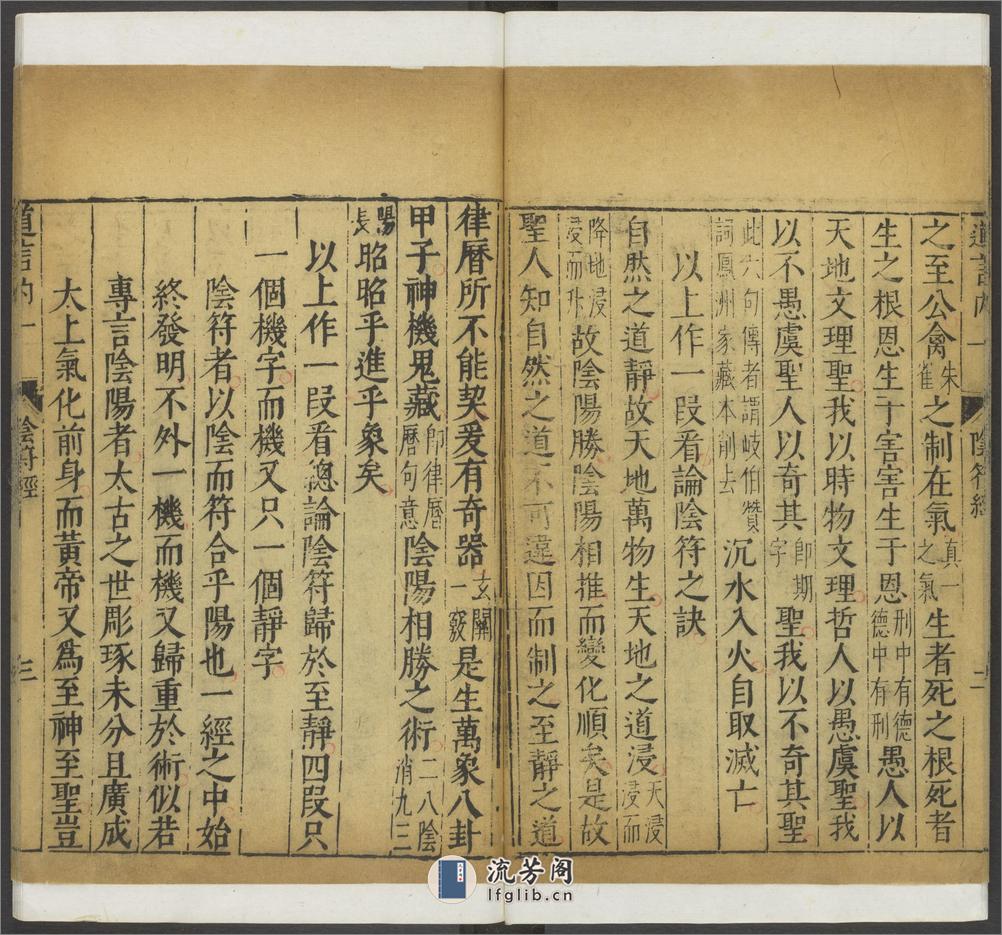 陰符經
二
之至公禽朱雀之制在氣真一之氣生者死之根死者
生之根恩生于害害生于恩刑中有德德中有刑愚人以
天地文理聖我以時物文理哲人以愚虞聖我
以不愚虞聖人以奇其即期字聖我以不奇其聖
此六句傳者謂岐伯贊詞鳳洲家藏本削去沉水入火自取滅亡
以上作一段看論陰符之訣
自然之道靜故天地萬物生天地之道浸天浸浸而
降地浸浸而升故陰陽勝陰陽相推而變化順矣是故
聖人知自然之道不可違因而制之至靜之道
律曆所不能契爰有奇器玄關一竅是生萬象八卦
甲子神機鬼藏即律曆曆句意陰陽相勝之術二八陰消九三
陽長昭昭乎進乎象矣
以上作一段看總論陰符歸於至靜四段只
一個機字而機又只一個靜字
陰符者以陰而符合乎陽也一經之中始
終發明不外一機而機又歸重於術似若
專言陰陽者太古之世彫琢未分且廣成
太上氣化前身而黃帝又為至神至聖豈
陰符經
三
流芳阁
lfglib.cn